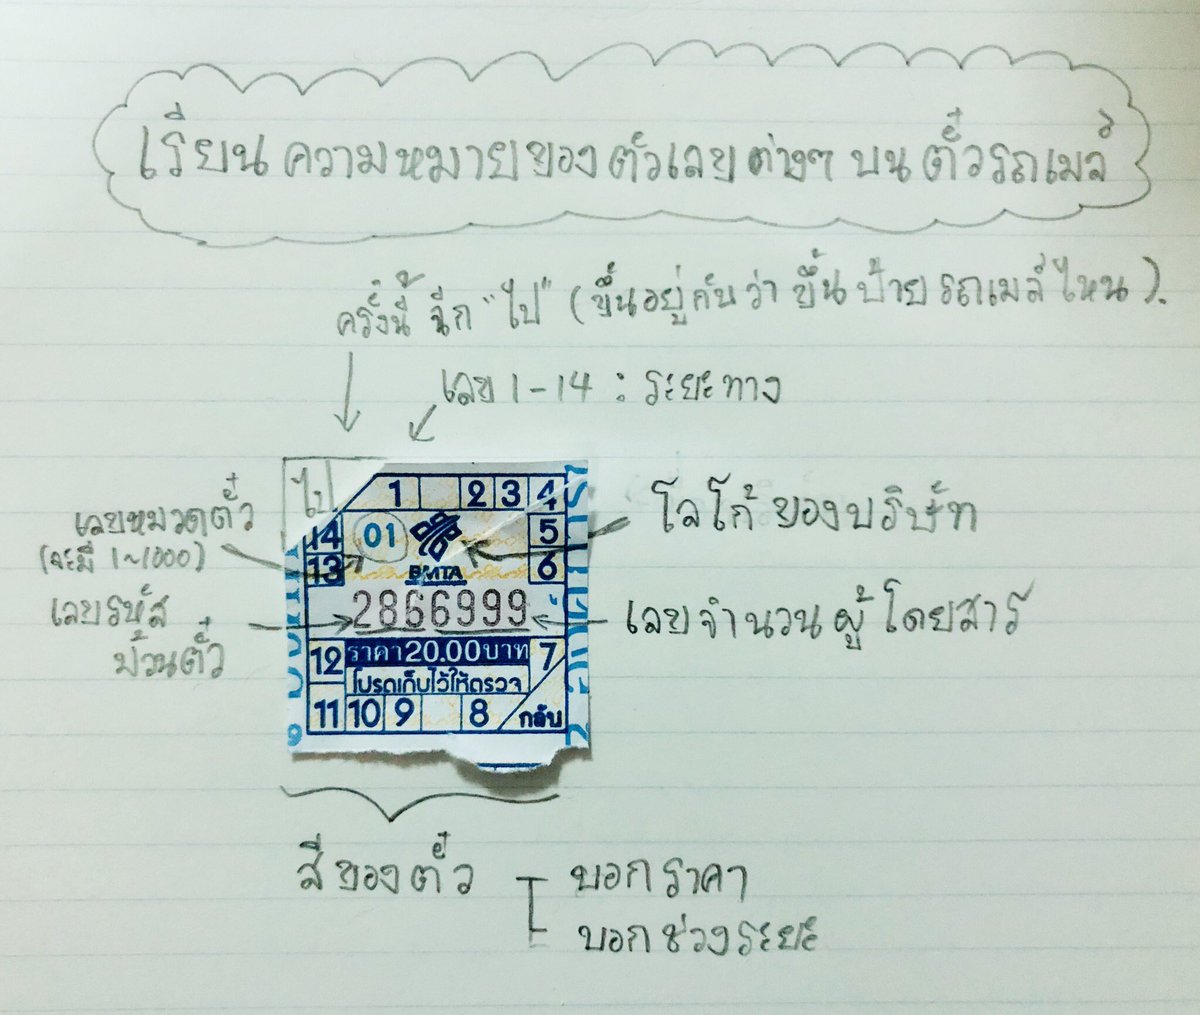 เรียนความหมายของตัวเลขต่างๆ บนตั๋วรถเมล์
ครั้งนี้ ฉีก "ไป" (ขึ้นอยู่กับว่า ขึ้นป้ายรถเมล์ไหน).
เลข 1-14 : ระยะทาง
ไป
1 2 3 4
เลขหมวดตั๋ว
(จะมี 1~1000)
14 01 5
โลโก้ของบริษัท
13 BMTA 6
เลขรหัส
ม้วนตั๋ว
2866999
เลขจำนวนผู้โดยสาร
12 ราคา 20.00 บาท 7
โปรดเก็บไว้ให้ตรวจ
11 10 9 8 กลับ
สีของตั๋ว
บอกราคา
บอกช่วงระยะ